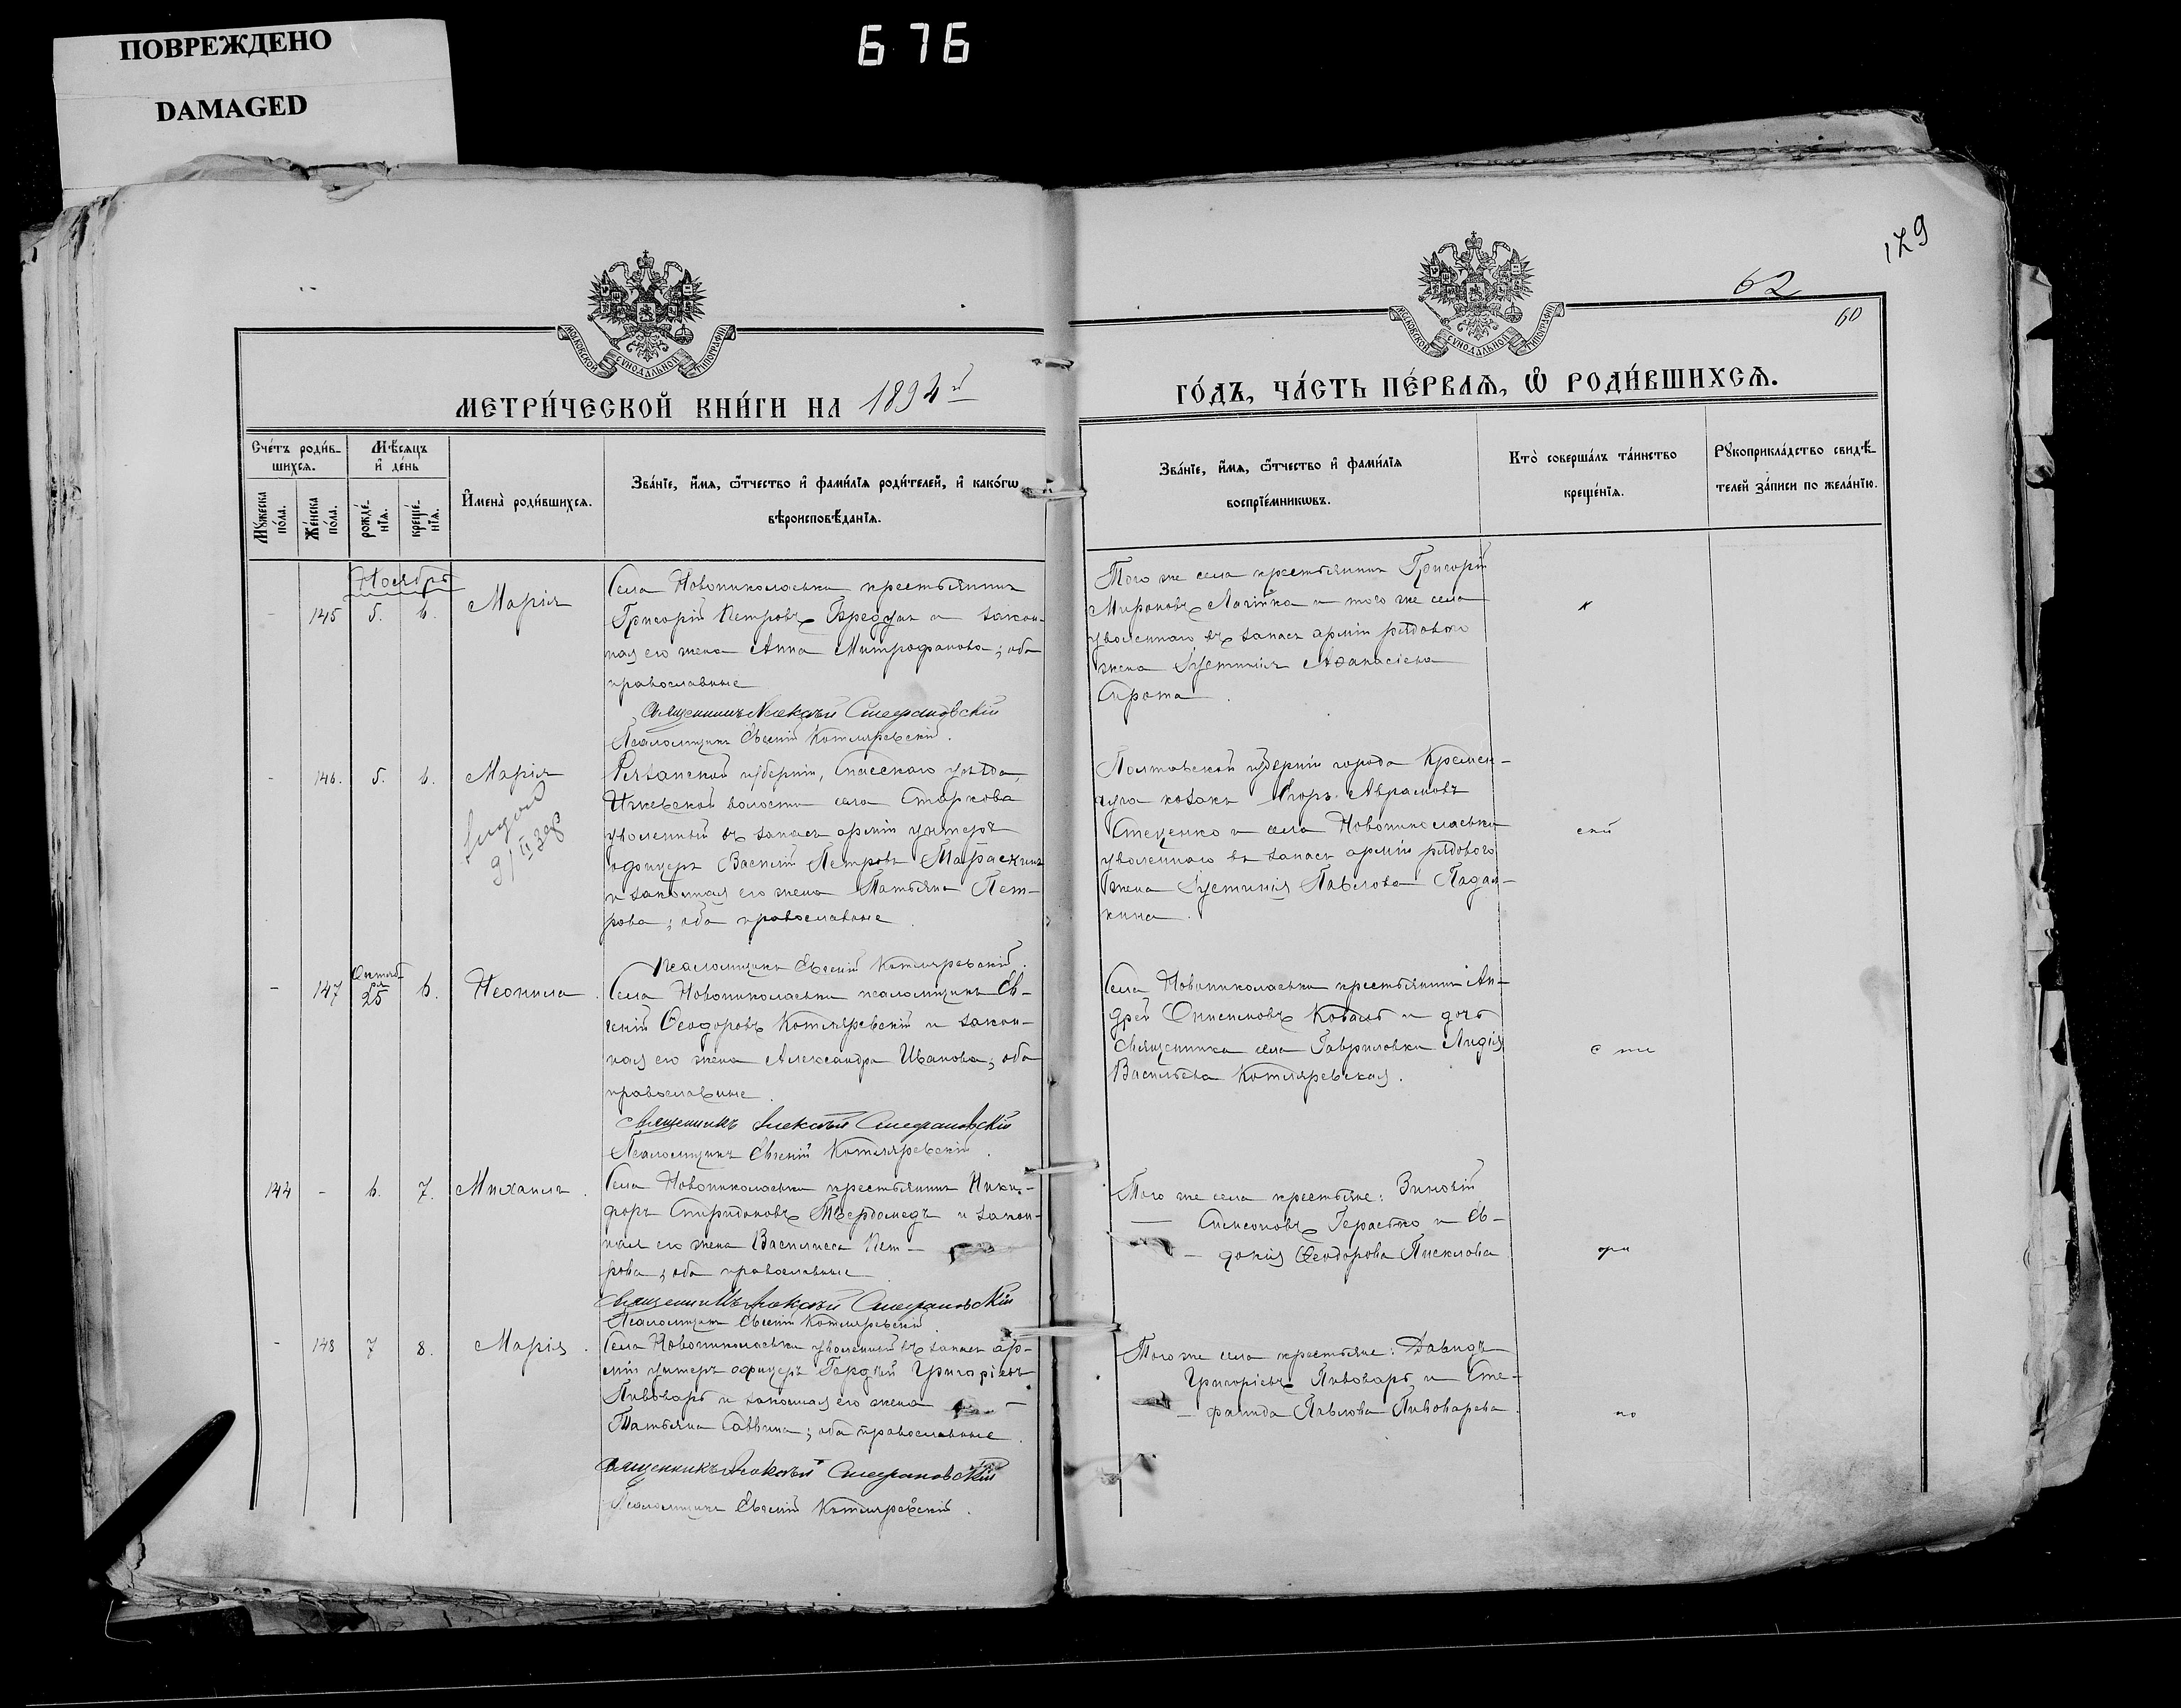 ПОВРЕЖДЕНО
DAMAGED
676
179
62
60
МОСКОВСКОЙ СѴНОДАЛЬНОЙ ТИПОГРАФІИ
МОСКОВСКОЙ СѴНОДАЛЬНОЙ ТИПОГРАФІИ
МЕТРИ́ЧЕСКОЙ КНИ́ГИ НА 1894й
ГО́ДЪ, ЧА́СТЬ ПЕ́РВАѦ, Ѽ РОДИ́ВШИХСѦ.
Сче́тъ роди́в-
шихсѧ.
Мꙋ́жеска по́ла.
Же́нска по́ла.
Мѣ́сѧцъ
и҆ де́нь
рожде́-
нїѧ.
креще́-
нїѧ.
И҆мена̀ роди́вшихсѧ.
Зва́нїе, и҆́мѧ, ѻ҆́тчество и҆ фами́лїѧ роди́телей, и҆ како́гѡ
вѣроисповѣ́данїѧ.
Зва́нїе, и҆́мѧ, ѻ҆́тчество и҆ фами́лїѧ
воспрїе́мникѡвъ.
Кто̀ соверша́лъ та́инство
креще́нїѧ.
Рꙋкоприкла́дство свидѣ́-
телей за́писи по жела́нїю.
Ноябрь
- 145 5. 6. Марія
Села Новониколаевки крестьянинъ
Григорій Петровъ Бредунъ и закон-
ная его жена Анна Митрофанова; оба
православные
Священникъ Алексѣй Стефановскій
Псаломщикъ Евгеній Котляревскій.
Того же села крестьянинъ Григорій
Мироновъ Лагійка и того же села
уволеннаго въ запасъ арміи рядового
жена Іустинія Аѳанасіева
Сирота.
- 146. 5. 6. Марія
Рязанской губерніи, Спасскаго уѣзда,
Ижевской волости села Старкова
уволенный въ запасъ арміи унтеръ
офицеръ Василій Петровъ
и законная его жена Татьяна Пет-
рова; оба православные.
Псаломщикъ Евгеній Котляревскій.
Полтавской губерніи города Кремен-
чуга козакъ Егоръ Аврамовъ
Стеценко и села Новониколаевки
уволеннаго въ запасъ арміи рядового
жена Іустинія Павлова Падал-
кина.
скій
- 147 Октяб-
ря
25 6. Неонила.
Села Новониколаевки псаломщикъ Ев-
геній Ѳеодоровъ Котляревскій и закон-
ная его жена Александра Иванова; оба
православные.
Священникъ Алексѣй Стефановскій
Псаломщикъ Евгеній Котляревскій.
Села Новониколаевки крестьянинъ Ан-
дрей Онисимовъ Коваль и дочь
Священника села Гавриловки Лидія
Васильева Котляревская.
е же
144 - 6. 7. Михаилъ.
Села Новониколаевки крестьянинъ Ники-
форъ Спиридоновъ Твердомедъ и закон-
ная его жена Василиса Пет-
рова; оба православные
Священникъ Алексѣй Стефановскій
Псаломщикъ Евгеній Котляревскій.
Того же села крестьяне: Зиновій
Симеоновъ Герасько и Ев-
докія Ѳеодорова Писклова
- 148 7 8. Марія.
Села Новониколаевки уволенный въ запасъ ар-
міи унтеръ офицеръ Гордѣй Григоріевъ
Пивоваръ и законная его жена
Татьяна Саввина; оба православные.
Священникъ Алексѣй Стефановскій
Псаломщикъ Евгеній Котляревскій.
Того же села крестьяне: Давидъ
Григоріевъ Пивоваръ и Сте-
фанида Павлова Пивоварева.